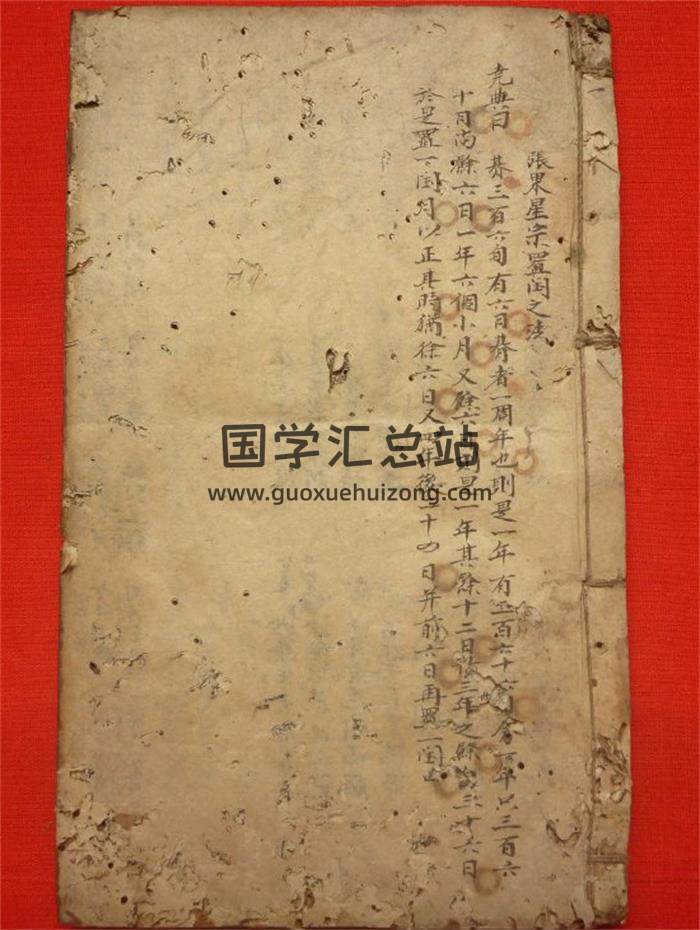 張果星宗置閏之法
堯典曰 朞三百六旬有六日朞者一周年也則是一年有三百六十六日今一年只三百六
十日尚餘六日一年六個小月又餘六日則是一年其餘十二日積三年之餘當三十六日
於是置一閏月以正其時猶餘六日又四年後二十四日并前六日再置一閏
国学汇总站
www.guoxuehuizong.com